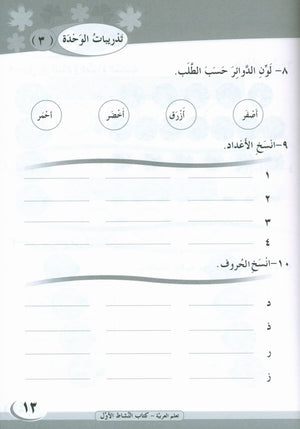 تَدْريباتُ الوَحْدَة ( ٣ )
٨- لَوِّنِ الدَّوائِرَ حَسَبَ الطَّلَب.
أصْفَر أزْرَق أخْضَر أحْمَر
٩-انْسَخِ الأعْداد.
١
٢
٣
٤
١٠-انْسَخِ الحُروف.
د
ذ
ر
ز
تعلم العربيّة - كتاب النّشاط الأوّل
١٣